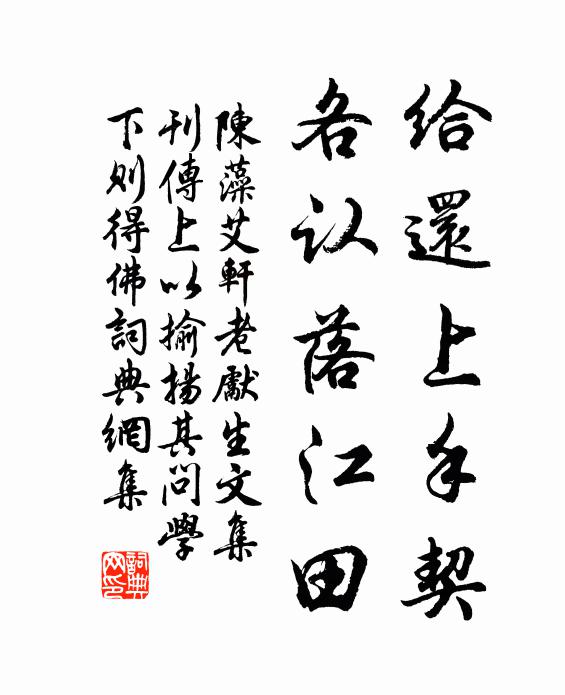 給還上手契
各认落江田
陳藻艾軒老獻生文集
刊傳上以揄揚其問學
下则得佛詞典網集
詞典网印